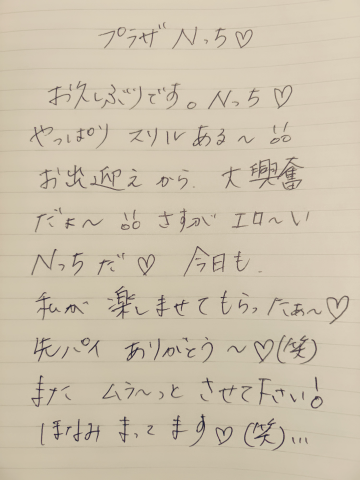 プラザ Nっち♡
お久しぶりです。Nっち♡
やっぱり スリル ある〜!!
お出迎え から、大興奮
だよ〜!! さすが エロ〜い
Nっち だ♡ 今日も、
私が 楽しませてもらったぁ〜♡
先パイ ありがとう〜♡(笑)
また ムラ〜っと させて下さい!
ほなみ まってます♡(笑)...